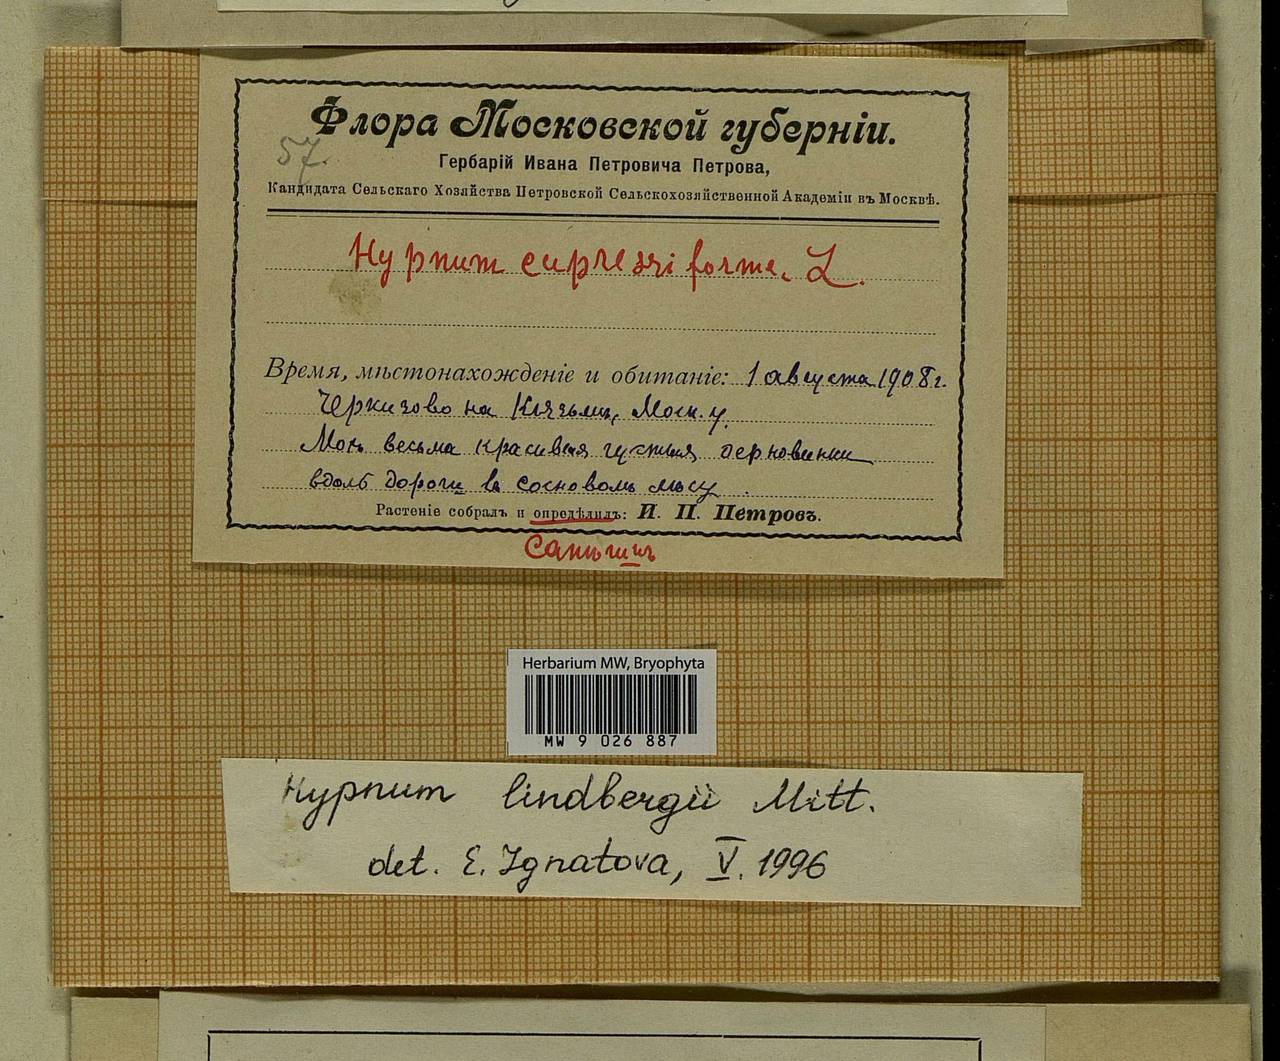 Флора Московской губерніи.
57.
Гербарій Ивана Петровича Петрова,
Кандидата Сельскаго Хозяйства Петровской Сельскохозяйственной Академіи въ Москвѣ.
Hypnum cupressiforme. L.
Время, мѣстонахожденіе и обитаніе: 1 августа 1908 г.
Черкизово на Клязьмѣ, Моск. у.
весьма красивыя густыя дерновинки
вдоль дороги въ сосновомъ лѣсу.
Растеніе собралъ и опредѣлилъ: И. П. Петровъ.
Herbarium MW, Bryophyta
MW 9 026 887
Hypnum lindbergii Mitt.
det. E. Ignatova, V. 1996